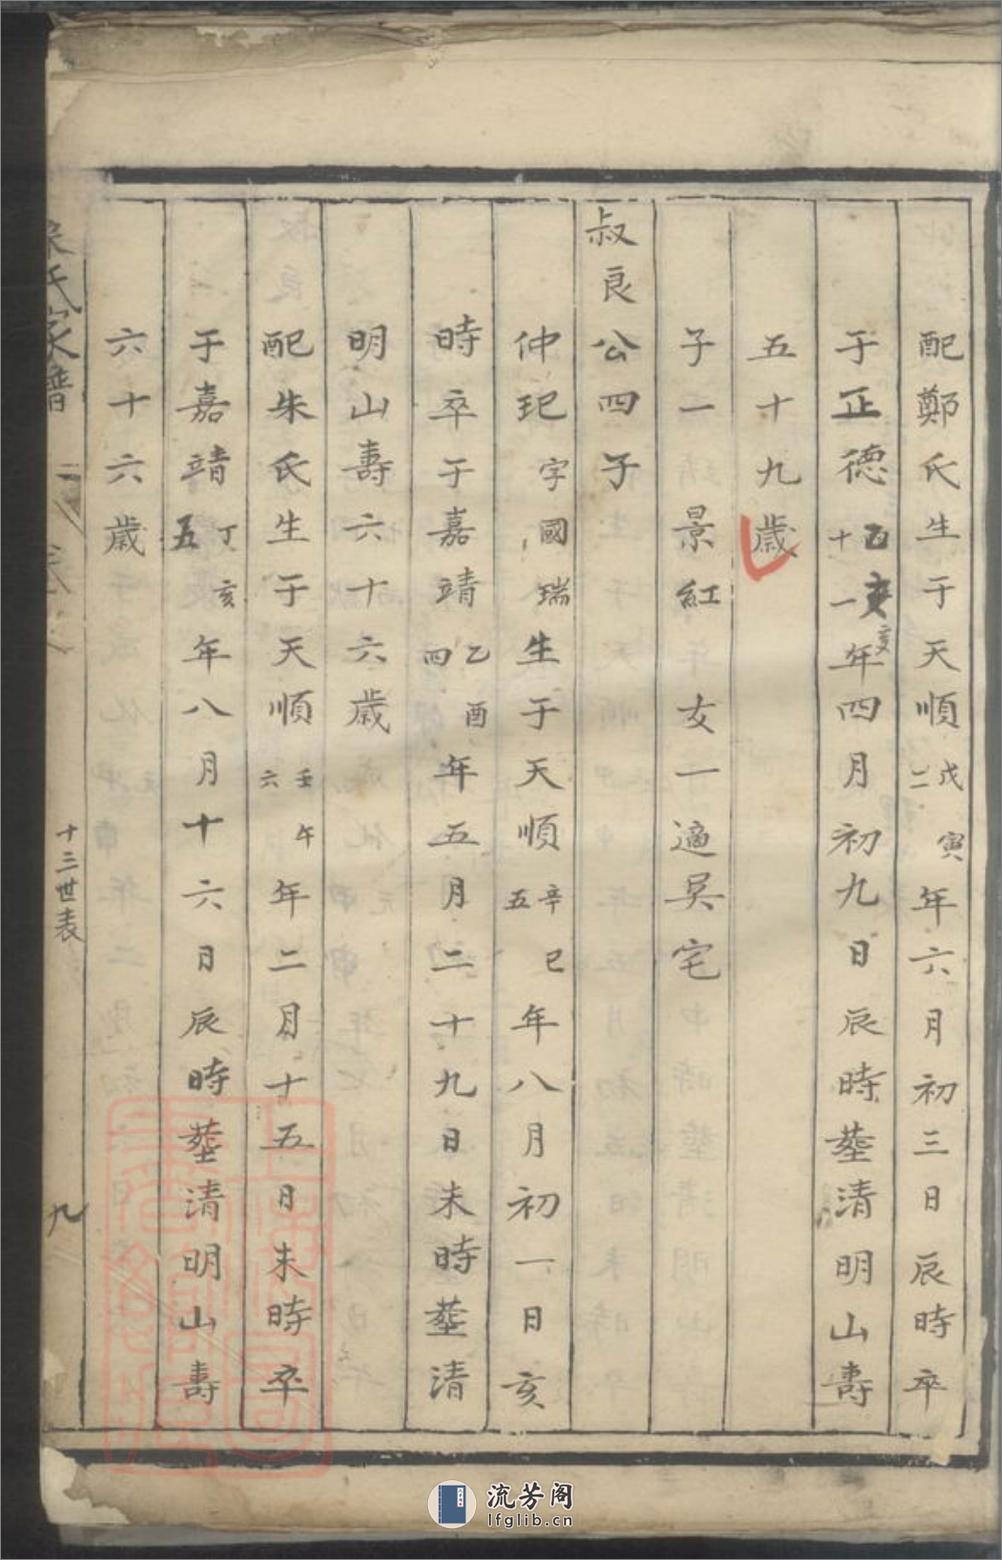 配鄭氏生于天順戊寅二年六月初三日辰時卒
于正德乙亥十一年四月初九日辰時塟清明山壽
五十九歲
子一 景紅 女一適吴宅
叔良公四子
仲玘字國瑞生于天順辛巳五年八月初一日亥
時卒于嘉靖乙酉四年五月二十九日未時塟清
明山壽六十六歲
配朱氏生于天順壬午六年二月十五日未時卒
于嘉靖丁亥五年八月十六日辰時塟清明山壽
六十六歲
氏家譜
十三世表
九
流芳阁
lfglib.cn